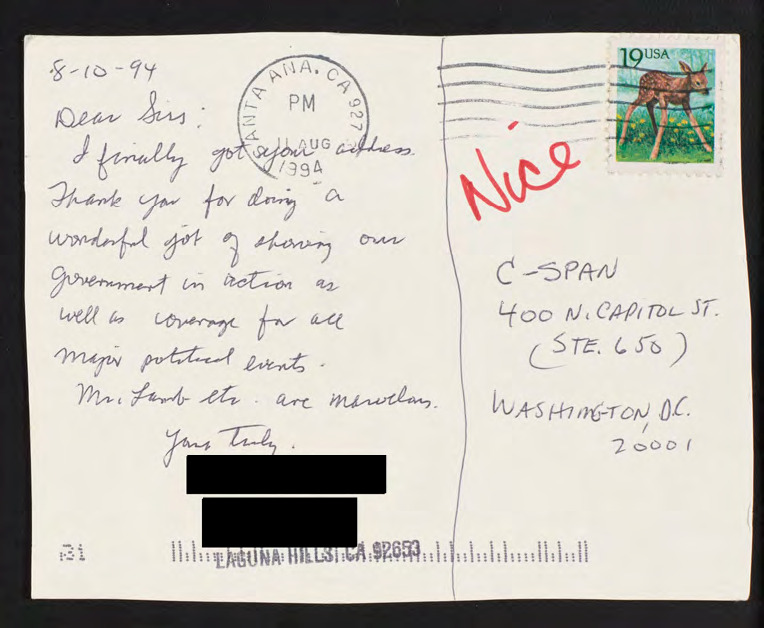 8-10-94
Dear Sirs:
I finally got your address.
Thank you for doing a
wonderful job of showing our
government in action as
well as coverage for all
major political events.
Mr. Lamb etc. are marvelous.
Yours Truly.
LAGUNA HILLS, CA 92653
31
SANTA ANA, CA 927
PM
11 AUG
1994
19 USA
Nice
C-SPAN
400 N. CAPITOL ST.
(STE. 650)
WASHINGTON, D.C.
20001